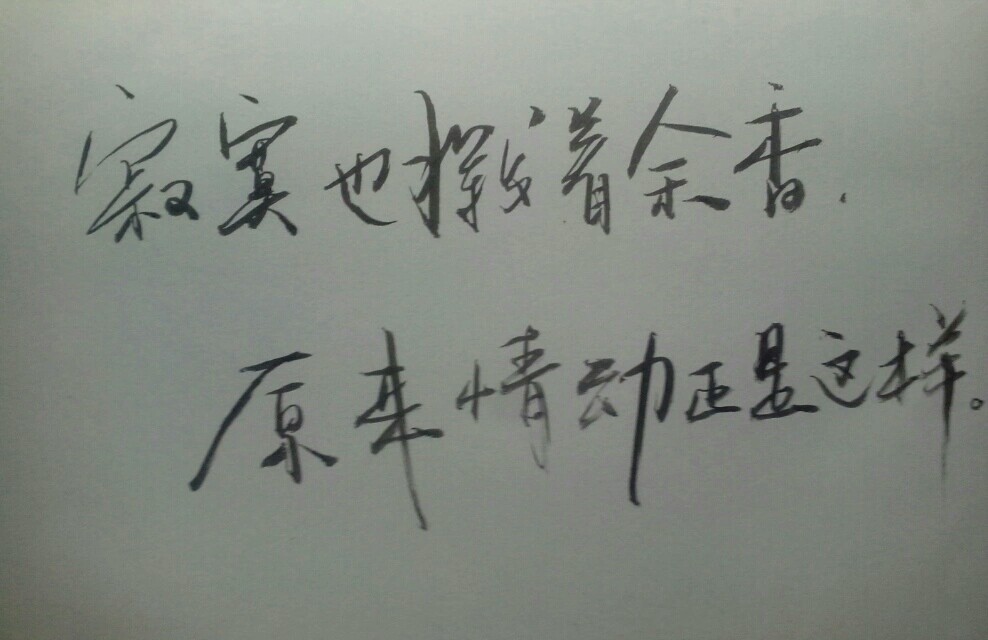 寂寞也挥发着余香,
原来情动正是这样。